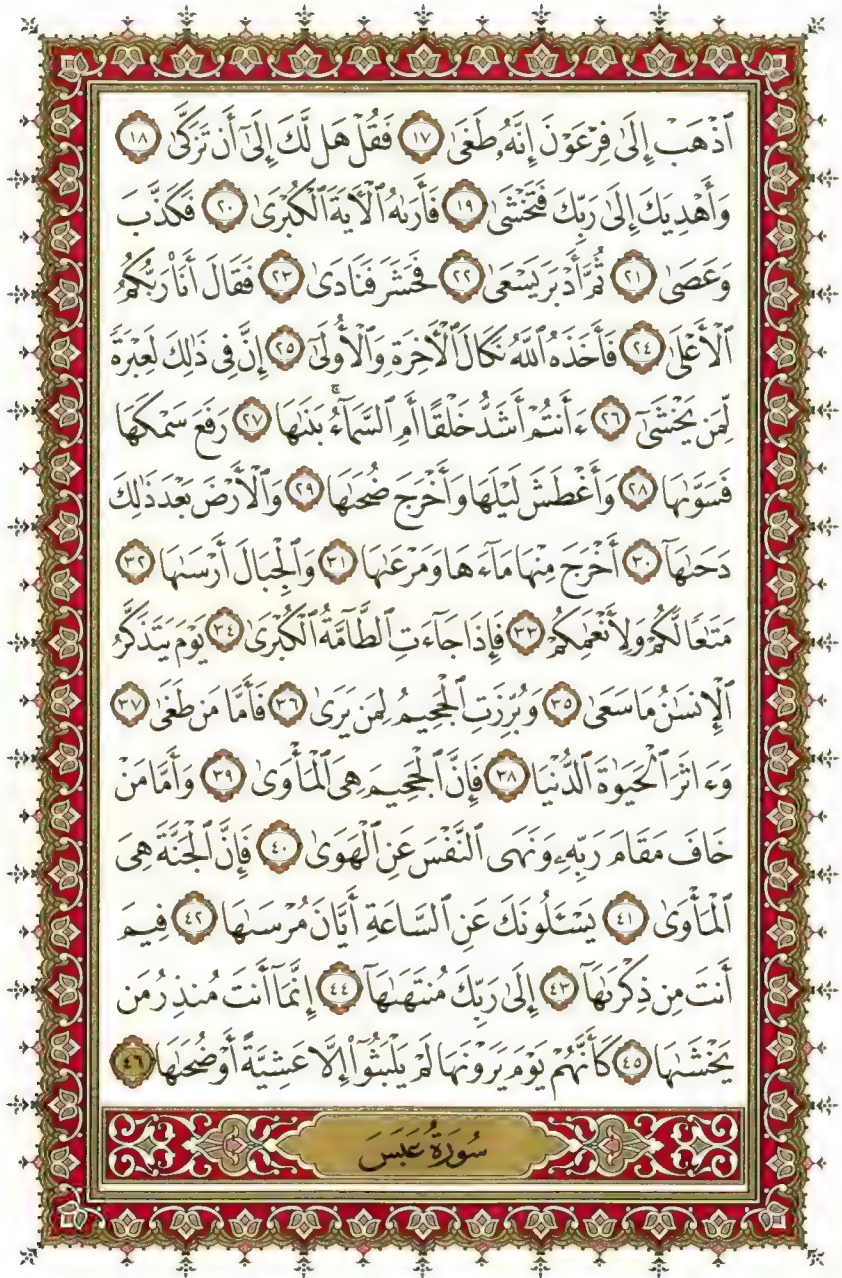 ٱذْهَبْ إِلَىٰ فِرْعَوْنَ إِنَّهُۥ طَغَىٰ ١٧ فَقُلْ هَل لَّكَ إِلَىٰٓ أَن تَزَكَّىٰ ١٨
وَأَهْدِيَكَ إِلَىٰ رَبِّكَ فَتَخْشَىٰ ١٩ فَأَرَىٰهُ ٱلْءَايَةَ ٱلْكُبْرَىٰ ٢٠ فَكَذَّبَ
وَعَصَىٰ ٢١ ثُمَّ أَدْبَرَ يَسْعَىٰ ٢٢ فَحَشَرَ فَنَادَىٰ ٢٣ فَقَالَ أَنَا۠ رَبُّكُمُ
ٱلْأَعْلَىٰ ٢٤ فَأَخَذَهُ ٱللَّهُ نَكَالَ ٱلْءَاخِرَةِ وَٱلْأُولَىٰٓ ٢٥ إِنَّ فِى ذَٰلِكَ لَعِبْرَةً
لِّمَن يَخْشَىٰٓ ٢٦ ءَأَنتُمْ أَشَدُّ خَلْقًا أَمِ ٱلسَّمَآءُ ۚ بَنَىٰهَا ٢٧ رَفَعَ سَمْكَهَا
فَسَوَّىٰهَا ٢٨ وَأَغْطَشَ لَيْلَهَا وَأَخْرَجَ ضُحَىٰهَا ٢٩ وَٱلْأَرْضَ بَعْدَ ذَٰلِكَ
دَحَىٰهَآ ٣٠ أَخْرَجَ مِنْهَا مَآءَهَا وَمَرْعَىٰهَا ٣١ وَٱلْجِبَالَ أَرْسَىٰهَا ٣٢
مَتَٰعًا لَّكُمْ وَلِأَنْعَٰمِكُمْ ٣٣ فَإِذَا جَآءَتِ ٱلطَّآمَّةُ ٱلْكُبْرَىٰ ٣٤ يَوْمَ يَتَذَكَّرُ
ٱلْإِنسَٰنُ مَا سَعَىٰ ٣٥ وَبُرِّزَتِ ٱلْجَحِيمُ لِمَن يَرَىٰ ٣٦ فَأَمَّا مَن طَغَىٰ ٣٧
وَءَاثَرَ ٱلْحَيَوٰةَ ٱلدُّنْيَا ٣٨ فَإِنَّ ٱلْجَحِيمَ هِىَ ٱلْمَأْوَىٰ ٣٩ وَأَمَّا مَنْ
خَافَ مَقَامَ رَبِّهِۦ وَنَهَى ٱلنَّفْسَ عَنِ ٱلْهَوَىٰ ٤٠ فَإِنَّ ٱلْجَنَّةَ هِىَ
ٱلْمَأْوَىٰ ٤١ يَسْـَٔلُونَكَ عَنِ ٱلسَّاعَةِ أَيَّانَ مُرْسَىٰهَا ٤٢ فِيمَ
أَنتَ مِن ذِكْرَىٰهَآ ٤٣ إِلَىٰ رَبِّكَ مُنتَهَىٰهَآ ٤٤ إِنَّمَآ أَنتَ مُنذِرُ مَن
يَخْشَىٰهَا ٤٥ كَأَنَّهُمْ يَوْمَ يَرَوْنَهَا لَمْ يَلْبَثُوٓا۟ إِلَّا عَشِيَّةً أَوْ ضُحَىٰهَا ٤٦
سُورَةُ عَبَسَ